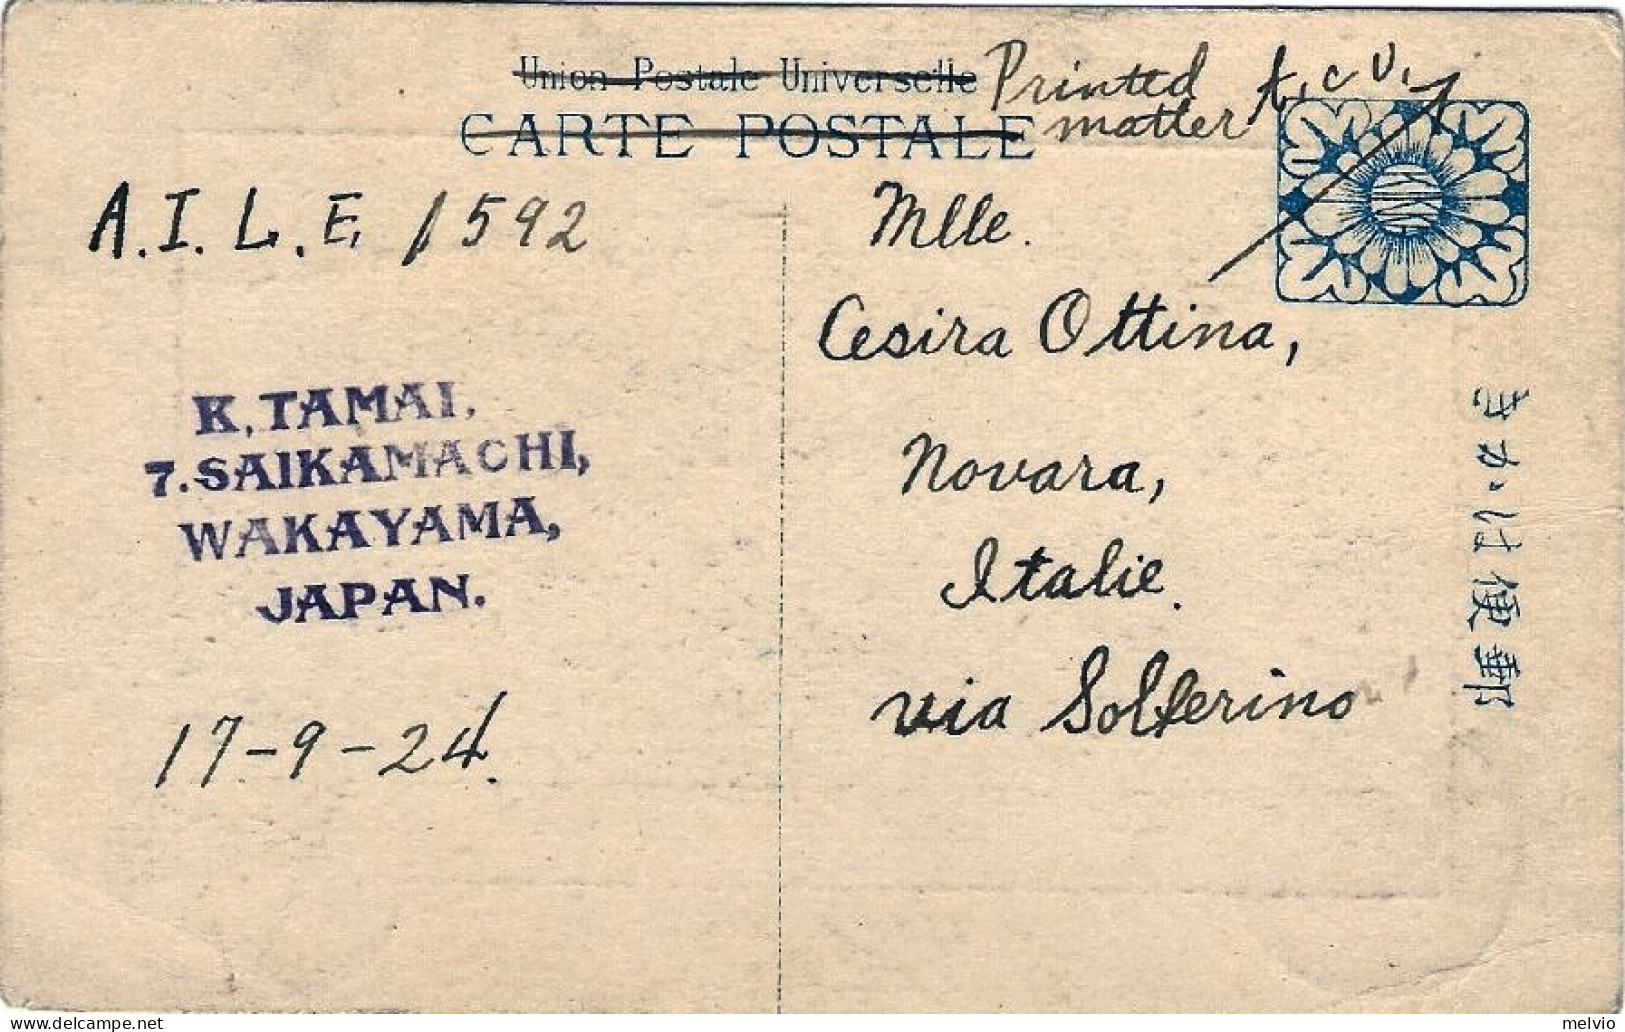 Union Postale Universelle
CARTE POSTALE
Printed
matter
t.c.v.
A.I.L.E. 1592
K. TAMAI,
7. SAIKAMACHI,
WAKAYAMA,
JAPAN.
17-9-24.
Mlle.
Cesira Ottina,
Novara,
Italie.
via Solferino
きかは便郵
melvio